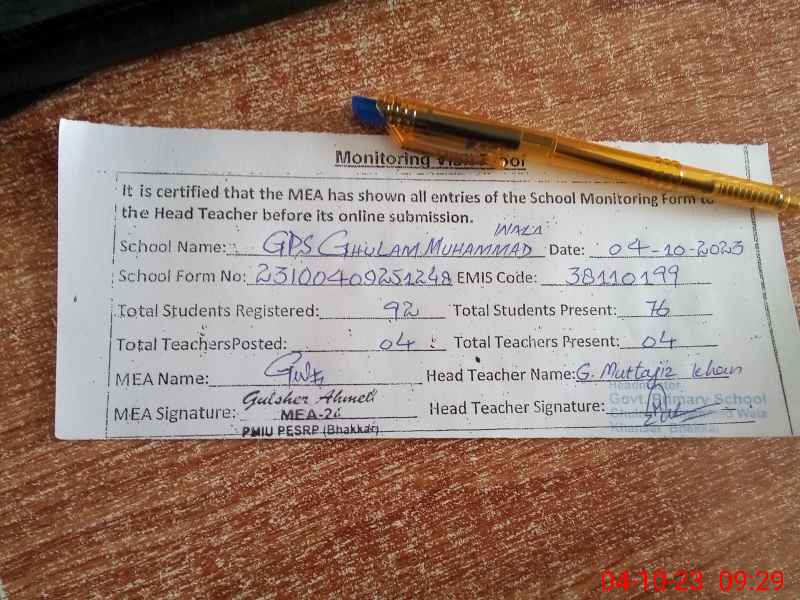 Monitoring Visit Proof
It is certified that the MEA has shown all entries of the School Monitoring Form to
the Head Teacher before its online submission.
School Name: GPS GHULAM MUHAMMAD WALA Date: 04-10-2023
School Form No: 23100409251248 EMIS Code: 38110199
Total Students Registered: 92 Total Students Present: 76
Total TeachersPosted: 04 Total Teachers Present: 04
MEA Name: Head Teacher Name: G. Murtajiz Khan
MEA Signature: Gulsher Ahmed Head Teacher Signature:
MEA-26
PMIU PESRP (Bhakkar)
Headmaster
Govt. Primary School
Wala
Khansar Bhakkar
04-10-23 09:29